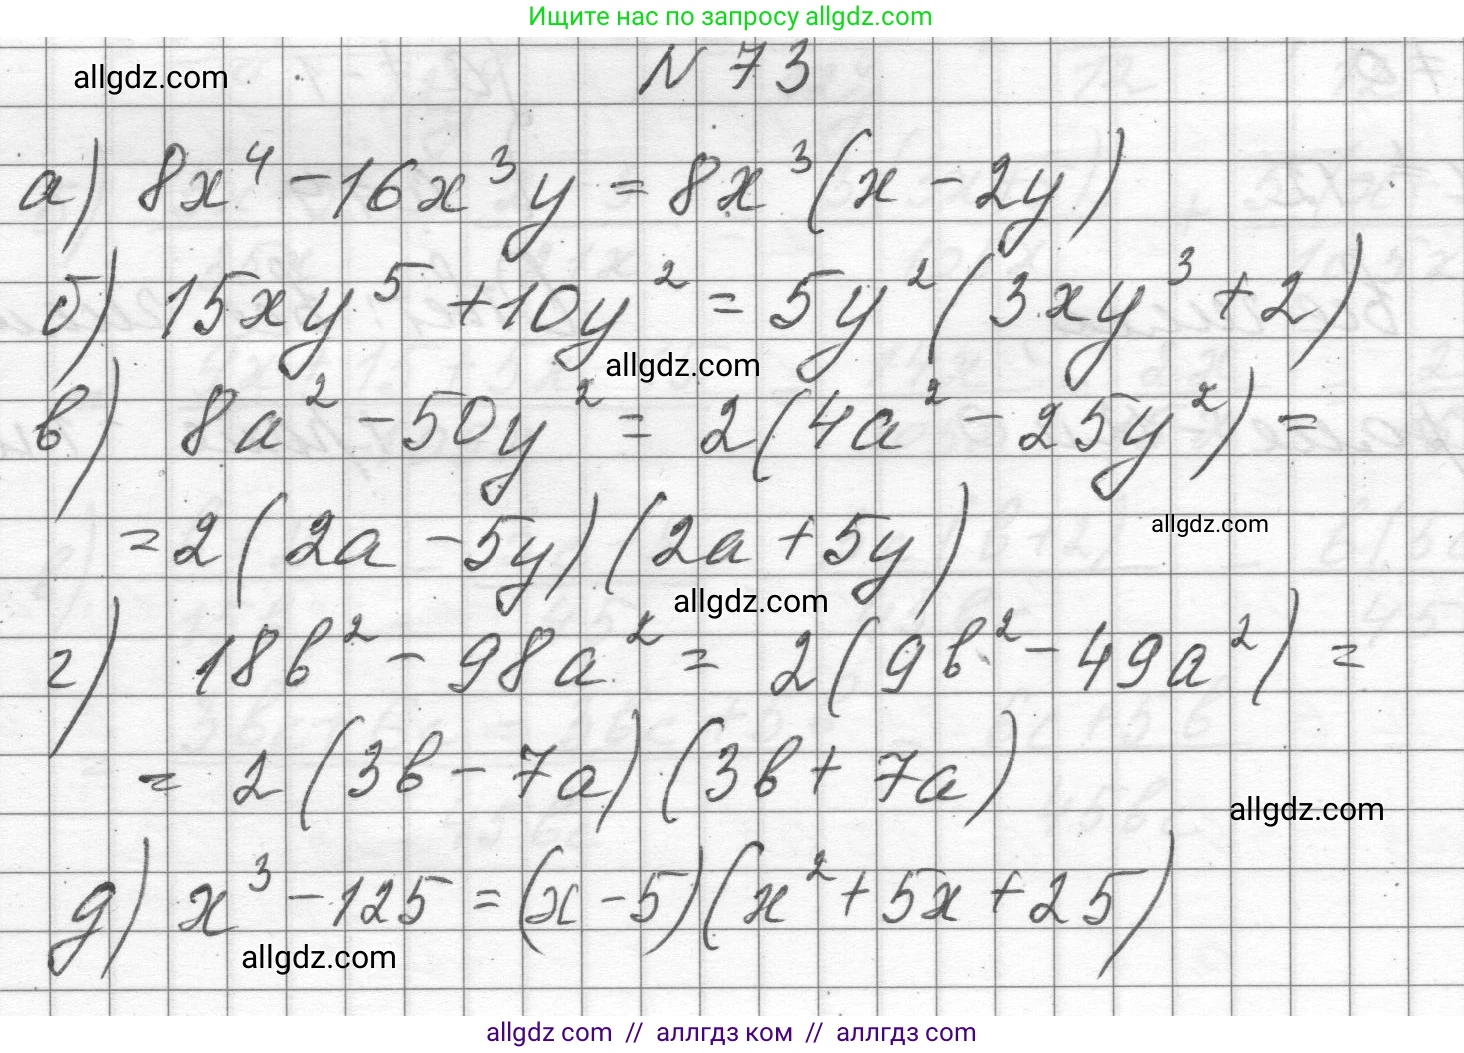 Ищите нас по запросу allgdz.com
allgdz.com
N 73
а) 8x⁴ - 16x³y = 8x³(x - 2y)
б) 15xy⁵ + 10y² = 5y²(3xy³ + 2)
allgdz.com
в) 8a² - 50y² = 2(4a² - 25y²) =
= 2(2a - 5y)(2a + 5y)
allgdz.com
allgdz.com
г) 18b² - 98a² = 2(9b² - 49a²) =
= 2(3b - 7a)(3b + 7a)
allgdz.com
д) x³ - 125 = (x - 5)(x² + 5x + 25)
allgdz.com
allgdz com // аллгдз ком // алλгдз com